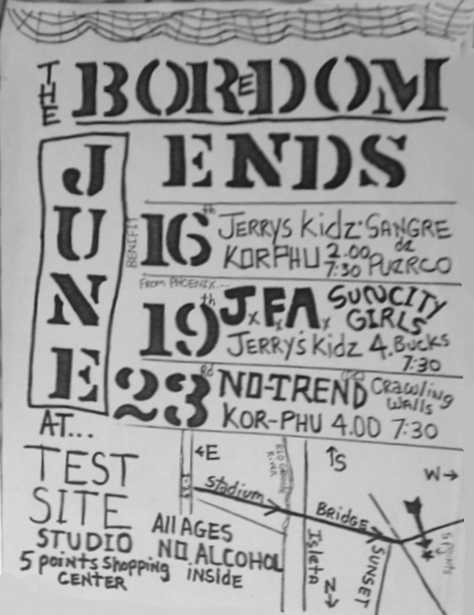 THE BOREDOM
ENDS
JUNE
BENIFIT
16th JERRYS Kidz · SANGRE de PUERCO
KORPHU 2.00 7:30
FROM PHOENIX...
19th J.F.A. SUNCITY GIRLS
JERRY'S KIDZ 4. BUCKS
7:30
23rd NO-TREND (DC) Crawling Walls
KOR-PHU 4.00 7:30
AT...
TEST
SITE
STUDIO
5 points shopping
CENTER
All AGES
NO ALCOHOL
INSIDE
E
S
W
N
RIO GRANDE RIVER
Stadium
BRIDGE
Isleta
SUNSET
5 Points